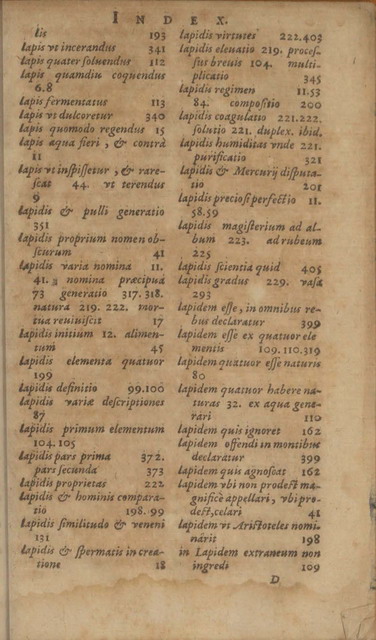 INDEX.
lis 193
lapis vt incerandus 341
lapis quater soluendus 112
lapis quamdiu coquendus
6.8
lapis fermentatus 113
lapis vt dulcoretur 340
lapis quomodo regendus 15
lapis aqua fieri, & contrà
11
lapis vt inspissetur, & rare-
scat 44. vt terendus
9
lapidis & pulli generatio
351
lapidis proprium nomen ob-
scurum 41
lapidis varia nomina 11.
41. nomina præcipua
73 generatio 317.318.
natura 219. 222. mor-
tua reuiuiscit 17
lapidis initium 12. alimen-
tum 45
lapidis elementa quatuor
199
lapidis definitio 99.100
lapidis variæ descriptiones
87
lapidis primum elementum
104.105
lapidis pars prima 372.
pars secunda 373
lapidis proprietas 222
lapidis & hominis compara-
tio 198.99
lapidis similitudo & veneni
131
lapidis & spermatis in crea-
tione 18
lapidis virtutes 222.403
lapidis eleuatio 219. proces-
sus breuis 104. multi-
plicatio 345
lapidis regimen 11.53
84. compositio 200
lapidis coagulatio 221.222.
solutio 221. duplex. ibid.
lapidis humiditas vnde 221.
purificatio 321
lapidis & Mercurij disputa-
tio 201
lapidis preciosi perfectio 11.
58.59
lapidis magisterium ad al-
bum 223. ad rubeum
225
lapidis scientia quid 405
lapidis gradus 229. vasa
293
lapidem esse, in omnibus re-
bus declaratur 399
lapidem esse ex quatuor ele
mentis 109.110.319
lapidem quatuor esse naturis
80
lapidem quatuor habere na-
turas 32. ex aqua gene-
rari 110
lapidem quis ignoret 162
lapidem offendi in montibus
declaratur 399
lapidem quis agnoscat 162
lapidem vbi non prodest ma-
gnificè appellari, vbi pro-
dest, celari 41
lapidem vt Aristoteles nomi-
nârit 198
in Lapidem extraneum non
ingredi 109
D